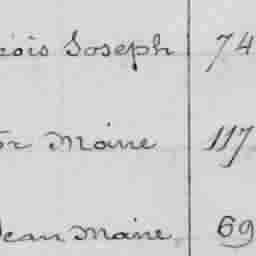 çois Joseph 74
or Marie 117
Jean Marie 69